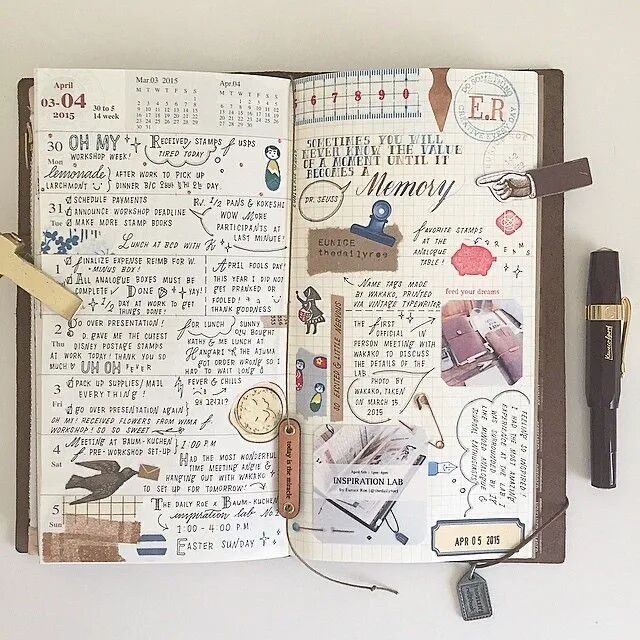 April
03-04
2015
30 to 5
14 week
Mar.03 2015
M T W T F S S
Apr.04
M T W T F S S
30
Mon
OH MY
WORKSHOP WEEK!
RECEIVED STAMPS
TIRED TODAY
USPS
lemonade
AFTER WORK TO PICK UP
LARCHMONT
DINNER B/C 28 DAY.
31
Tue
SCHEDULE PAYMENTS
ANNOUNCE WORKSHOP DEADLINE
MAKE MORE STAMP BOOKS
PANS & KOKESHI
WOW MORE
PARTICIPANTS AT
LAST MINUTE!
LUNCH AT BCD WITH
1
FINALIZE EXPENSE REIMB FOR W.
MINUS BOX!
ALL ANALOGUE BOXES MUST BE
COMPLETE DONE
1/2 DAY AT WORK TO GET
THINGS DONE!
APRIL FOOLS DAY
THIS YEAR I DID NOT
GET PRANKED OR
FOOLED!
THANK GOODNESS
2
Thu
GO OVER PRESENTATION!
D. GAVE ME THE CUTEST
DISNEY POSTAGE STAMPS
AT WORK TODAY! THANK YOU SO
MUCH
UH OH FEVER
FOR LUNCH
SUNNY
BOUGHT
KATHY & ME LUNCH AT
HANGARI THE AJUMA
GOT ORDER WRONG SO I
HAD TO WAIT FOREVER
3
Fri
PACK UP SUPPLIES/MAIL
EVERYTHING!
GO OVER PRESENTATION AGAIN
OH MY! RECEIVED FLOWERS FROM WIMA
WORKSHOP! SO SO SWEET
FEVER & CHILLS
4
Sat
MEETING AT BAUM-KUCHEN
PRE-WORKSHOP SET-UP
1:00 PM
HAD THE MOST WONDERFUL
TIME MEETING ANGIE &
HANGING OUT WITH WAKAKO
TO SET UP FOR TOMORROW
5
Sun
THE DAILY ROE x BAUM-KUCHEN
inspiration lab No
1:00-4:00 PM
EASTER SUNDAY
today is the miracle
6 7 8 9 0
DO SOMETHING
CREATIVE EVERY DAY
E.R
SOMETIMES YOU WILL
NEVER KNOW THE VALUE
OF A MOMENT UNTIL IT
BECOMES A
Memory
DR. SEUSS
EUNICE
thedailyroe
FAVORITE STAMPS
AT THE
ANALOGUE
TABLE!
DREAMS
feed your dreams
NAME TAGS MADE
BY WAKAKO, PRINTED
VIA VINTAGE TYPEWRITER
SO EXCITED & LITTLE NERVOUS
THE FIRST
OFFICIAL IN
PERSON MEETING WITH
WAKAKO TO DISCUSS
THE DETAILS OF THE
LAB
PHOTO BY
WAKAKO, TAKEN
ON MARCH 15,
2015
INSPIRATION LAB
by Eunice Roe (@thedailyroe)
FEELING SO INSPIRED!
I HAD THE MOST AMAZING
EXPERIENCE AT THE LAB. I
WAS SURROUNDED BY
LIKE MINDED
APR 05 2015
Kaweco